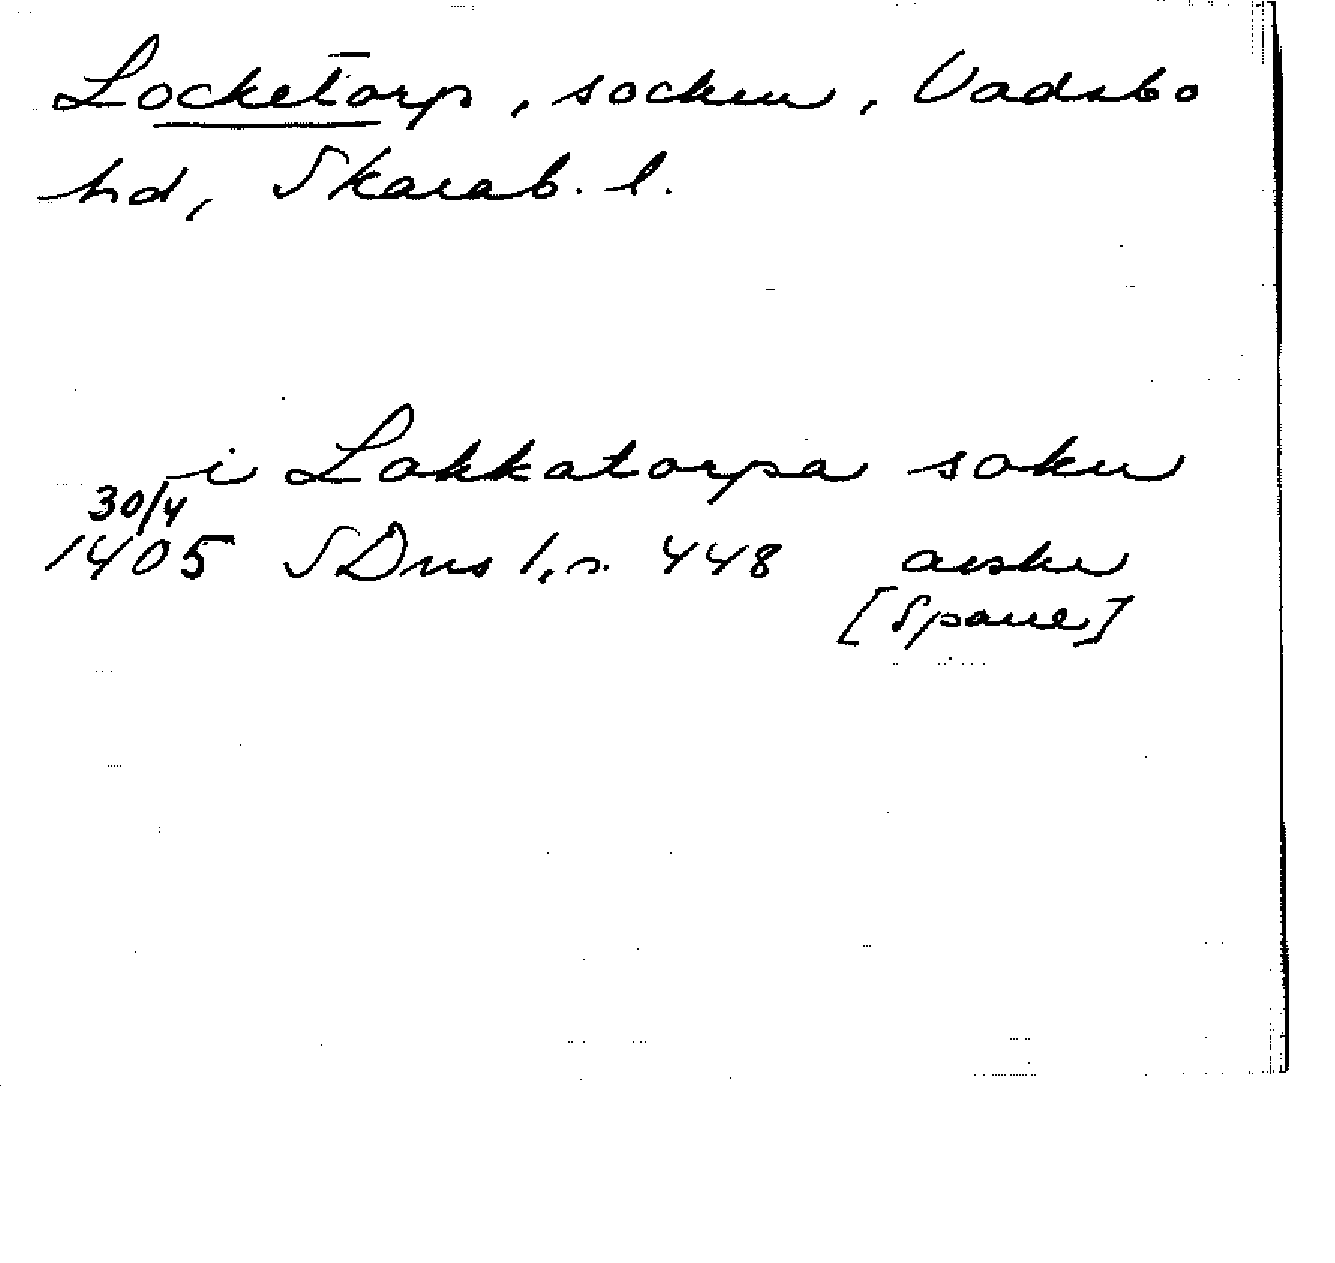 Locketorp, socken, Vadsbo
hd, Skarab. l.
i Lokkatorpa sokn
30/4
1405 SDns 1, s. 448 avskr
[Spane]